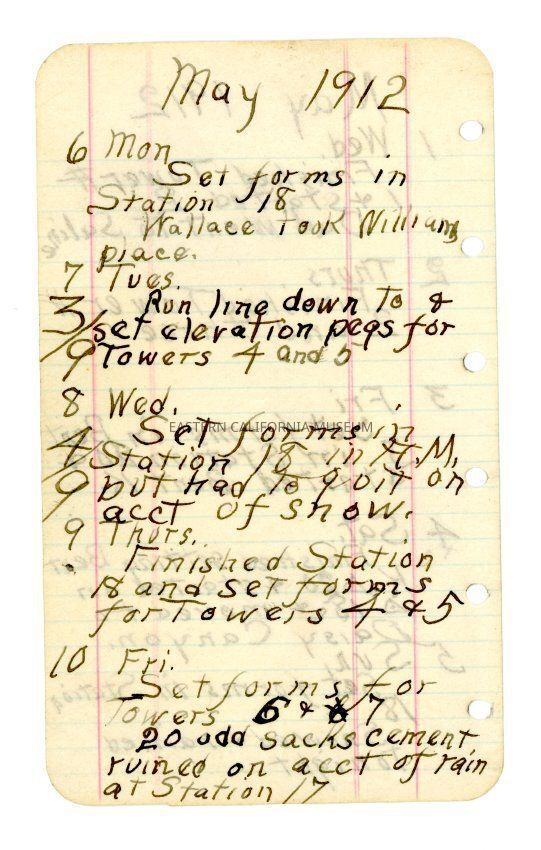 May 1912
6 Mon
Set forms in
Station 18
Wallace Took Williams
place.
7 Tues.
Run line down To &
3/9 set elevation pegs for
Towers 4 and 5
8 Wed.
EASTERN CALIFORNIA MUSEUM
Set forms in
4/9 Station 18 in A.M.
but had to quit on
acct of snow.
9 Thurs.
Finished Station
18 and set forms
for Towers 4 & 5
10 Fri.
Set forms for
Towers 6 & 7
20 odd sacks cement
ruined on acct of rain
at Station 17